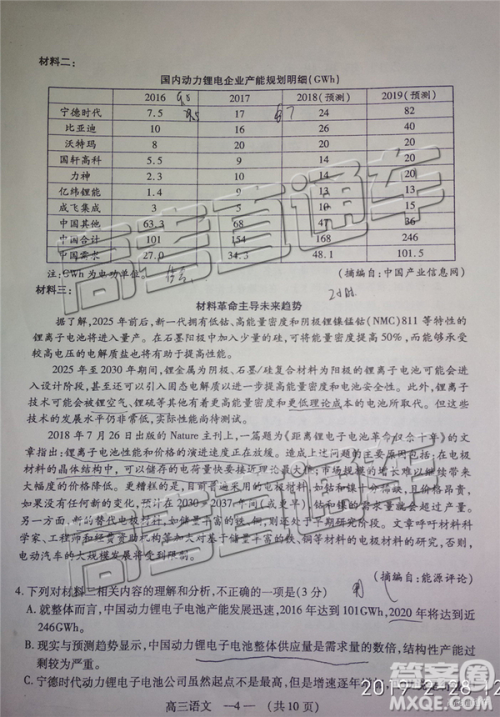 材料二：
国内动力锂电企业产能规划明细(GWh)
2016 2017 2018(预测) 2019(预测)
宁德时代 7.5 17 24 82
比亚迪 10 16 26 40
沃特玛 8 20 20 20
国轩高科 5.5 9 14 20
力神 2.3 10 14 20
亿纬锂能 1.4 9 13
成飞集成 3 15
中国其他 63.3 68 47 36
中国合计 101 154 168 246
中国需求 27.0 34.3 48.1 101.5
注：GWh为电功单位。 (摘编自：中国产业信息网)
材料三：
材料革命主导未来趋势
据了解,2025年前后,新一代拥有低钴、高能量密度和阴极锂镍锰钴(NMC)811等特性的
锂离子电池将进入量产。在石墨阳极中加入少量的硅,可将能量密度提高50%,而能够承受
较高电压的电解质盐也将有助于提高性能。
2025年至2030年期间,锂金属为阴极、石墨/硅复合材料为阳极的锂离子电池可能会进
入设计阶段,甚至还可以引入固态电解质以进一步提高能量密度和电池安全性。此外,锂离子
技术可能会被锂空气、锂硫等其他有着更高能量密度和更低理论成本的电池所取代。但这些
技术的发展水平仍非常低,实际性能尚待测试。
2018年7月26日出版的Nature主刊上,一篇题为《距离锂电子电池革命仅余十年》的文
章指出：锂离子电池性能和价格的演进速度正在放缓。造成上述问题的主要原因包括：在电极
材料的晶体结构中,可以储存的电荷量快要接近理论最大值；市场规模的增长难以继续带来
大幅度的价格降低。更糟糕的是,目前普遍采用的电极材料,如钴和镍十分稀缺,且价格昂贵,
如果没有任何新的变化,预计在2030－2037年间(或更早)钴和镍的需求量就会超过产量。
另一方面,新的替代电极材料,如储量丰富的铁、铜,则还处于早期研究阶段。文章呼吁材料科
学家、工程师和经费资助机构等加大对基于储量丰富的铁、铜等材料的电极材料的研究,否则,
电动汽车的大规模发展将受到阻碍。
(摘编自：能源评论)
4. 下列对材料一相关内容的理解和分析,不正确的一项是(3分)
A. 就整体而言,中国动力锂电子电池产能发展迅速,2016年达到101GWh,2020年将达到近
246GWh。
B. 现实与预测趋势显示,中国动力锂电子电池整体供应量是需求量的数倍,结构性产能过
剩较为严重。
C. 宁德时代动力锂电子电池公司虽然起点不是最高,但是增速逐年
高三语文 —4— (共10页)
高考直通车
高考直通车
答案圈
MXQE.COM
2019-2-28 12